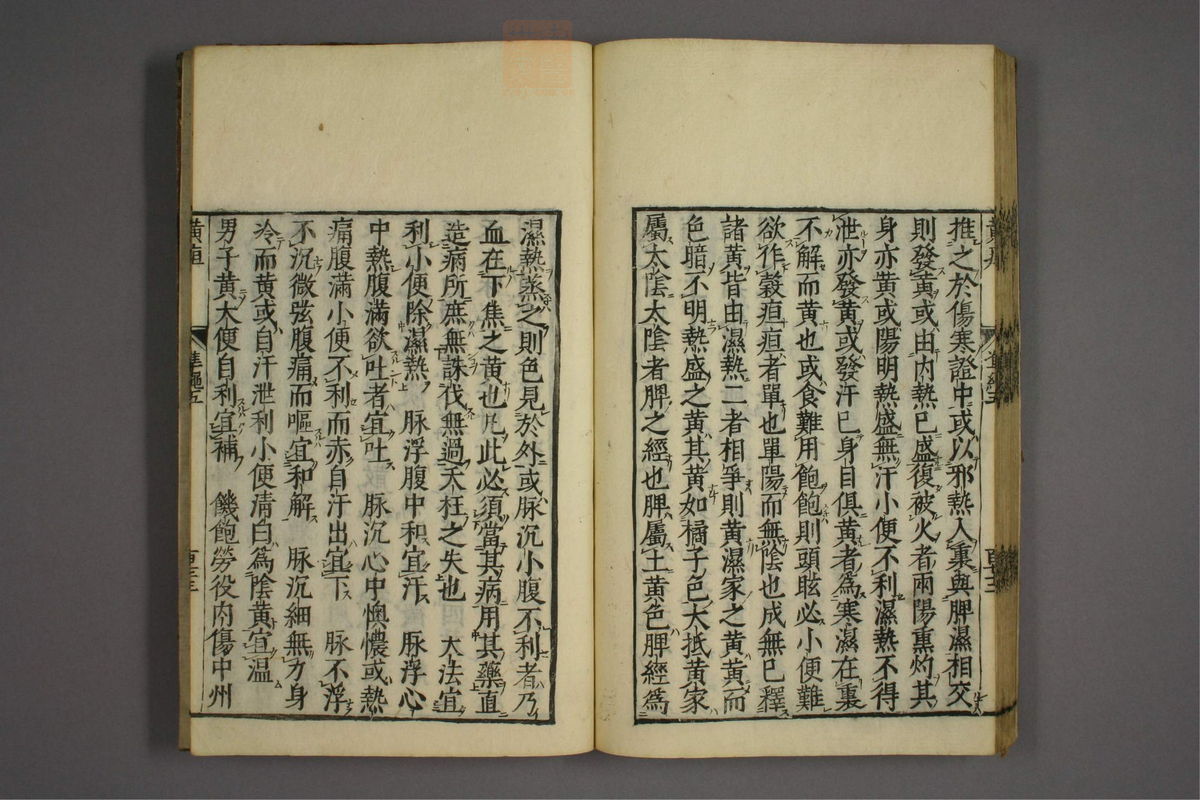 推之於傷寒證中或以邪熱入裏與脾濕相交
則發黄或由内熱已盛復被火者兩陽熏灼其
身亦黄或陽明熱盛無汗小便不利濕熱不得
泄亦發黄或發汗已身目俱黄者爲寒濕在裏
不解而黄也或食難用飽飽則頭眩必小便難
欲作穀疸疸者單也單陽而無陰也成無已釋
諸黄皆由濕熱二者相爭則黄濕家之黄黄而
色暗不明熱盛之黄其黄如橘子色大抵黄家
屬太陰太陰者脾之經也脾屬土黄色脾經爲
濕熱蒸之則色見於外或脉沉小腹不利者乃
血在下焦之黄也凡此必須當其病用其藥直
造病所庶無誅伐無過夭枉之失也 大法宜
利小便除濕熱 脉浮腹中和宜汗 脉浮心
中熱腹滿欲吐者宜吐 脉沉心中懊憹或熱
痛腹滿小便不利而赤自汗出宜下 脉不浮
不沉微弦腹痛而嘔宜和解 脉沉細無力身
冷而黄或自汗泄利小便清白爲陰黄宜温
男子黄大便自利宜補 饑飽勞役内傷中州
黄疸